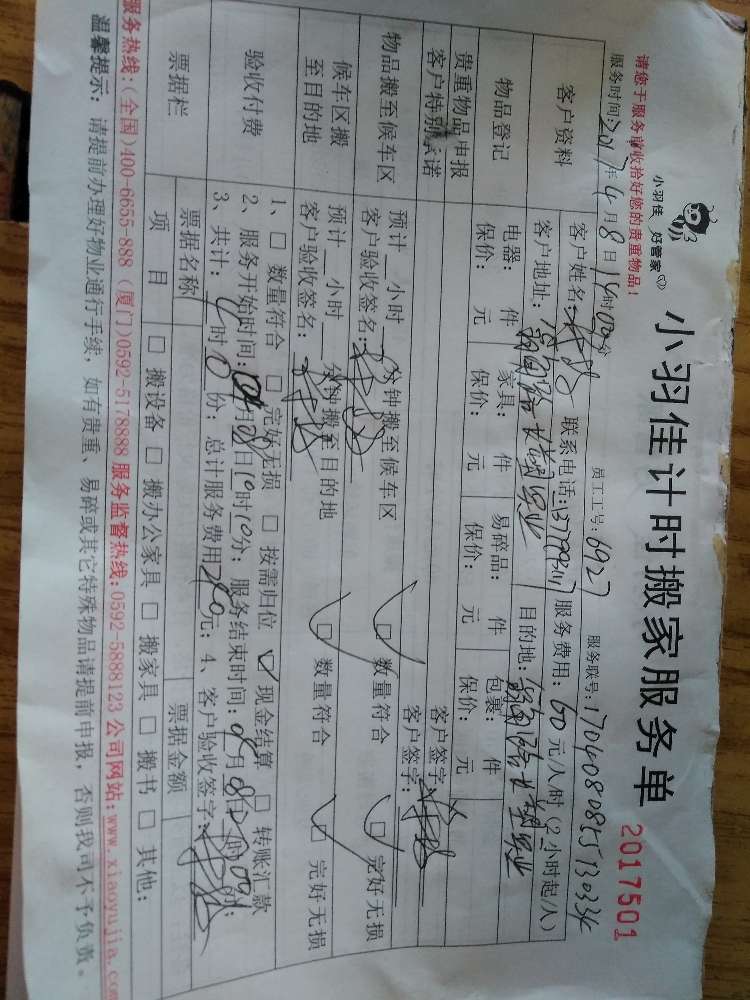 小羽佳 好管家
小羽佳计时搬家服务单 2017501
请您于服务前收拾好您的贵重物品！ 员工工号：6927 服务联号：
服务时间：2017年4月8日14时00分
客户资料 客户姓名： 联系电话： 服务费用：60元/人时（2小时起/人）
客户地址： 目的地：
物品登记 电器： 件 家具： 件 易碎品： 件 包裹： 件
保价： 元 保价： 元 保价： 元 保价： 元
贵重物品申报 客户签字：
客户特别承诺 客户签字：
物品搬至候车区 预计 小时 分钟搬至候车区 □ 数量符合 □ 完好无损
客户验收签名：
候车区搬至目的地 预计 小时 分钟搬至目的地 □ 数量符合 □ 完好无损
客户验收签名：
验收付费 1、□ 数量符合 □ 完好无损 □ 按需归位 □ 现金结算 □ 转账汇款
2、服务开始时间： 月 日 时 分；服务结束时间： 月 日 时
3、共计： 时 0 份；总计服务费用 元；4、客户验收签字：
票据栏 票据名称 票据金额
项目 □ 搬设备 □ 搬办公家具 □ 搬家具 □ 搬书 □ 其他：
服务热线：（全国）400-6655-888（厦门）0592-5178888 服务监督热线：0592-5888123 公司网站：www.xiaoyujia.com
温馨提示：请提前办理好物业通行手续，如有贵重、易碎或其它特殊物品请提前申报，否则我司不予负责。